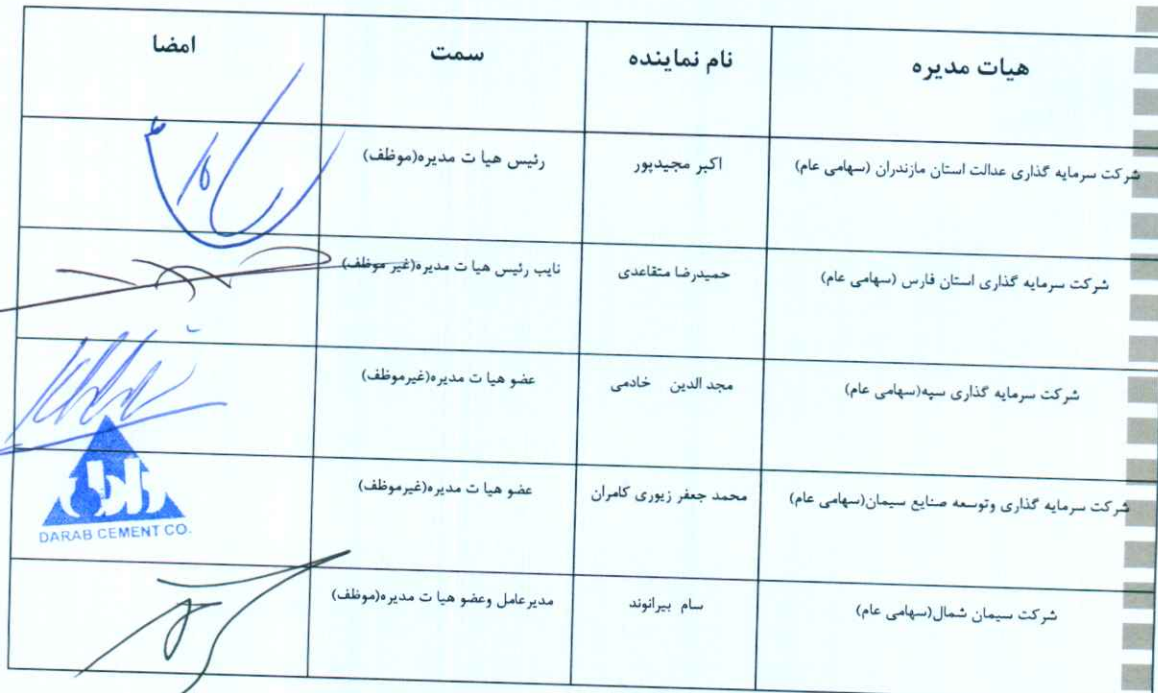 هیات مدیره
نام نماینده
سمت
امضا
شرکت سرمایه گذاری عدالت استان مازندران (سهامی عام)
اکبر مجیدپور
رئیس هیا ت مدیره(موظف)
شرکت سرمایه گذاری استان فارس (سهامی عام)
حمیدرضا متقاعدی
نایب رئیس هیا ت مدیره(غیر موظف)
شرکت سرمایه گذاری سپه(سهامی عام)
مجد الدین خادمی
عضو هیا ت مدیره(غیرموظف)
شرکت سرمایه گذاری وتوسعه صنایع سیمان(سهامی عام)
محمد جعفر زیوری کامران
عضو هیا ت مدیره(غیرموظف)
DARAB CEMENT CO.
شرکت سیمان شمال(سهامی عام)
سام بیرانوند
مدیرعامل وعضو هیا ت مدیره(موظف)